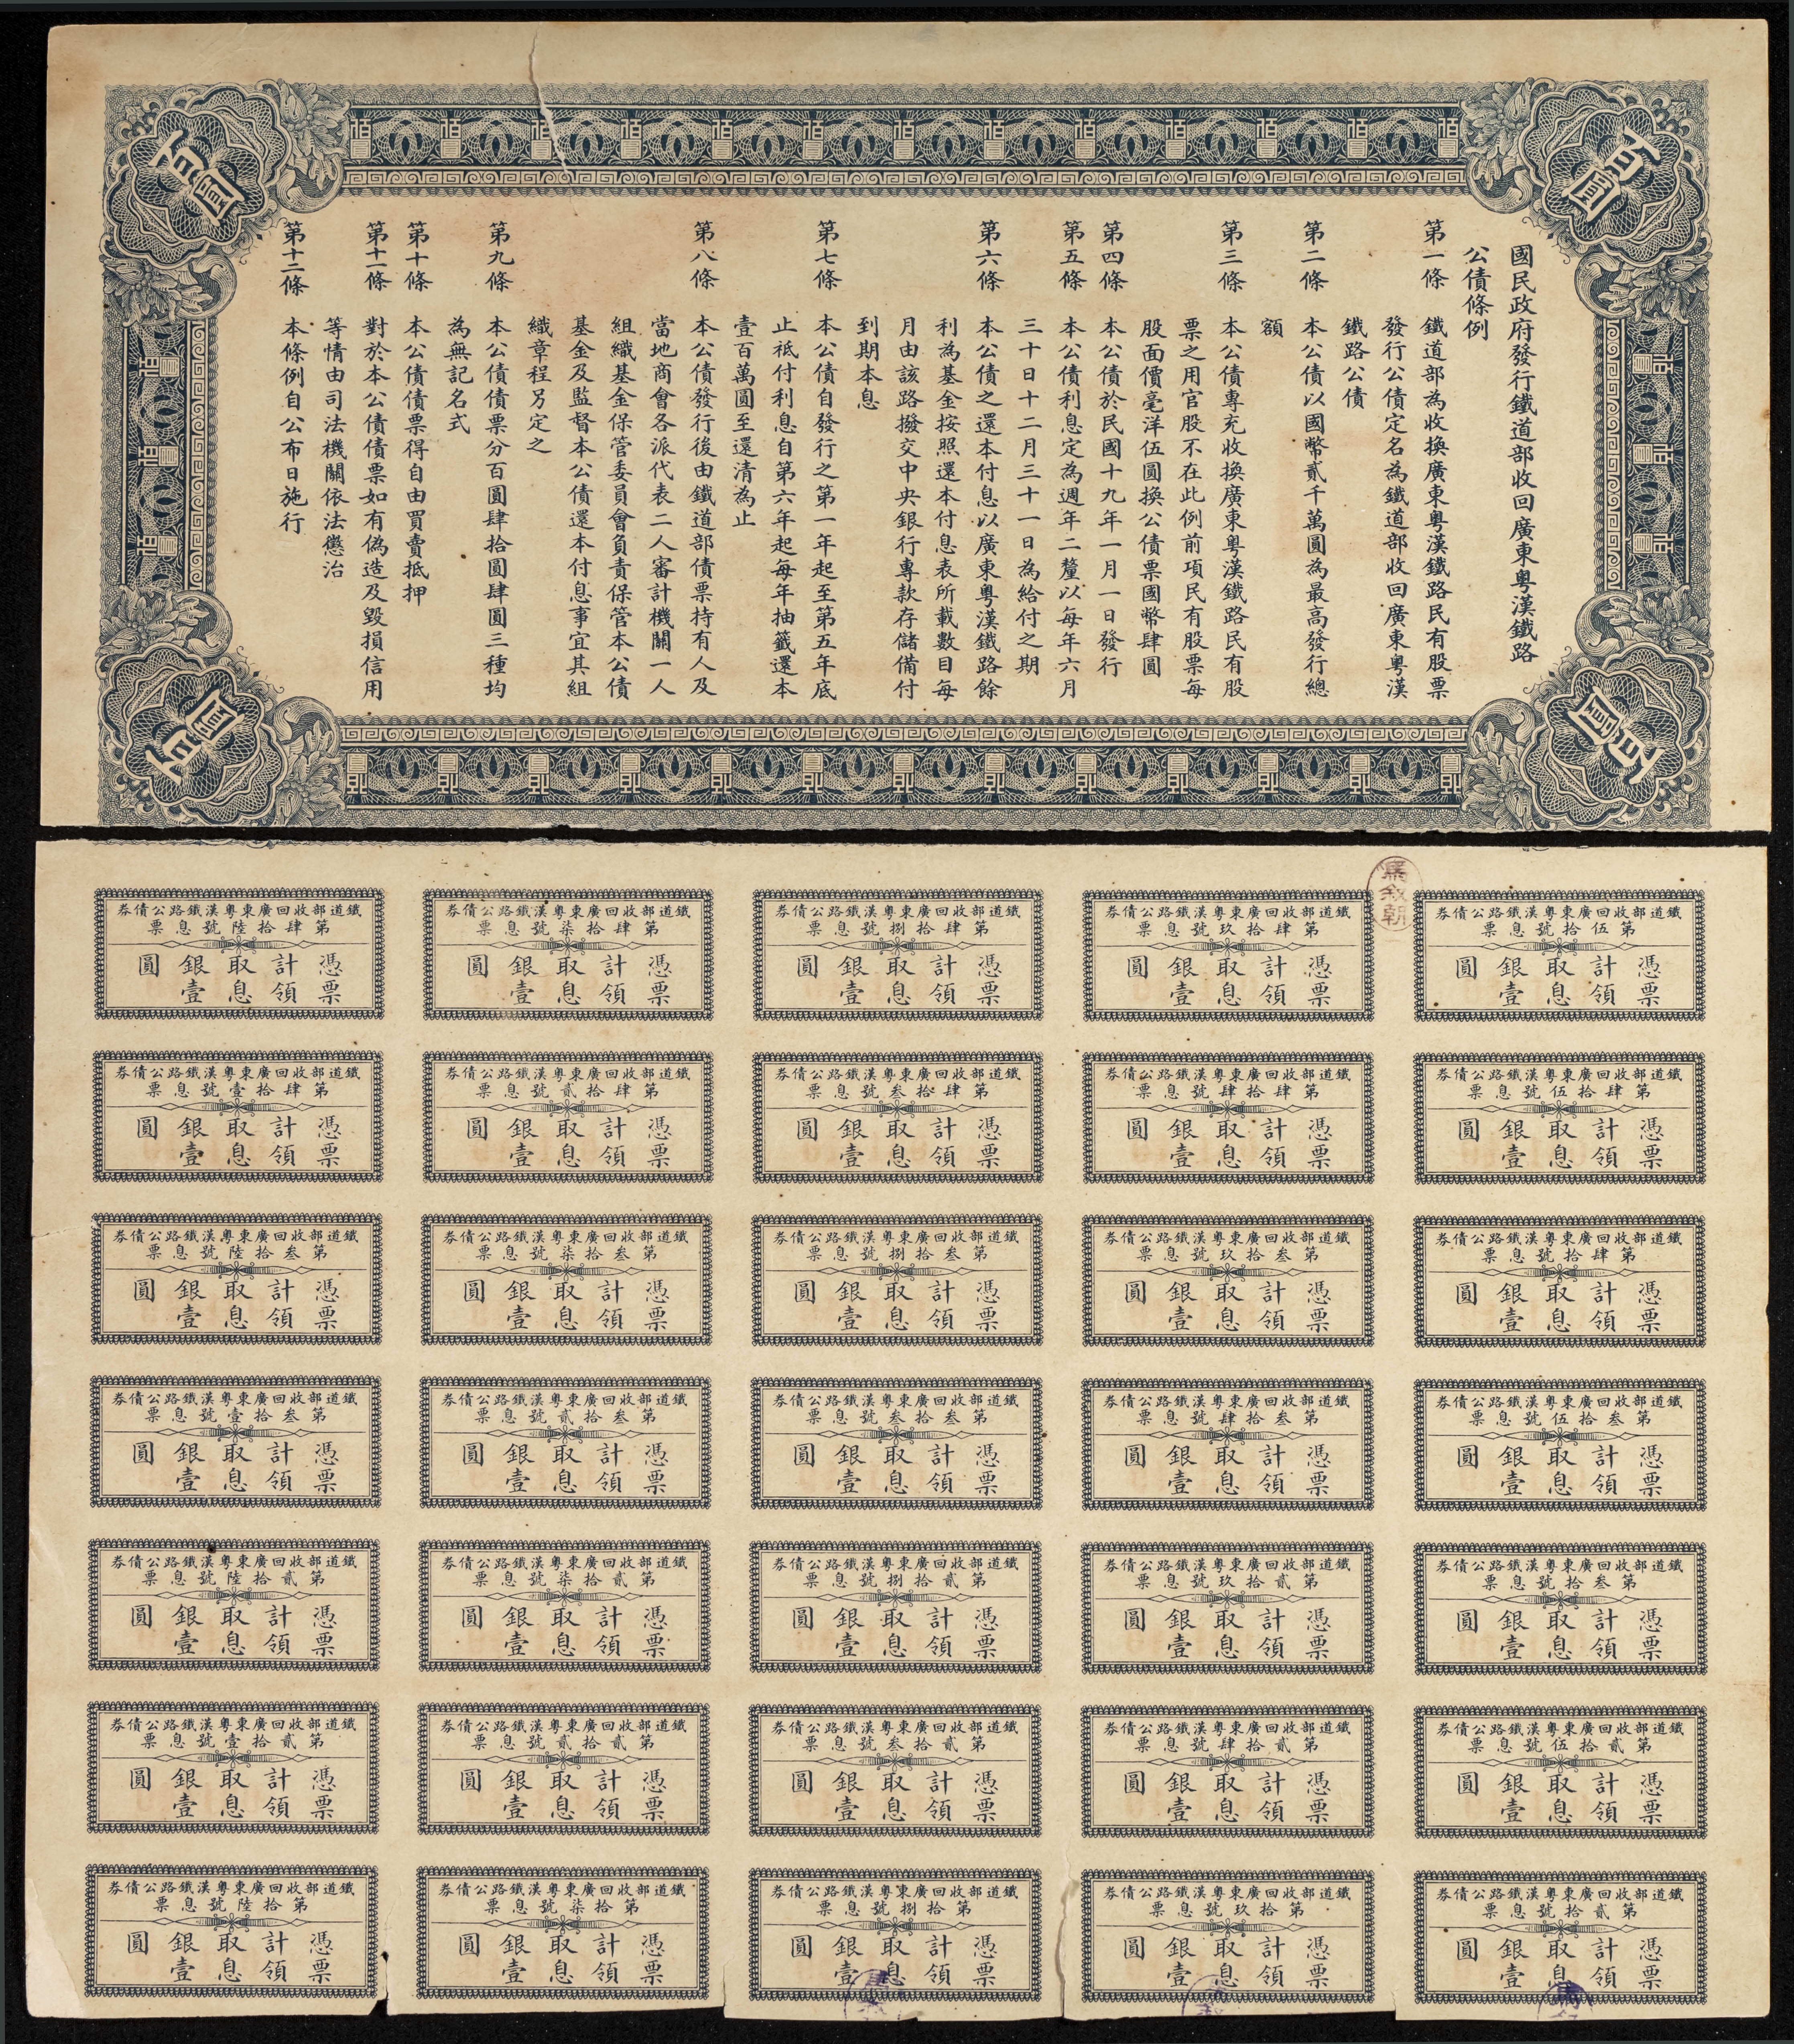 百圓
百圓
百圓
百圓
國民政府發行鐵道部收回廣東粵漢鐵路
公債條例
第一條 鐵道部為收換廣東粵漢鐵路民有股票
發行公債定名為鐵道部收回廣東粵漢
鐵路公債
第二條 本公債以國幣貳千萬圓為最高發行總
額
第三條 本公債專充收換廣東粵漢鐵路民有股
票之用官股不在此例前項民有股票每
股面價毫洋伍圓換公債票國幣肆圓
第四條 本公債於民國十九年一月一日發行
第五條 本公債利息定為週年二釐以每年六月
三十日十二月三十一日為給付之期
第六條 本公債之還本付息以廣東粵漢鐵路餘
利為基金按照還本付息表所載數目每
月由該路撥交中央銀行專款存儲備付
到期本息
第七條 本公債自發行之第一年起至第五年底
止祇付利息自第六年起每年抽籤還本
壹百萬圓至還清為止
第八條 本公債發行後由鐵道部債票持有人及
當地商會各派代表二人審計機關一人
組織基金保管委員會負責保管本公債
基金及監督本公債還本付息事宜其組
織章程另定之
第九條 本公債債票分百圓肆拾圓肆圓三種均
為無記名式
第十條 本公債債票得自由買賣抵押
第十一條 對於本公債債票如有偽造及毀損信用
等情由司法機關依法懲治
第十二條 本條例自公布日施行
鐵道部收回廣東粵漢鐵路公債券
第伍拾號息票
憑票計領取息銀壹圓
鐵道部收回廣東粵漢鐵路公債券
第肆拾玖號息票
憑票計領取息銀壹圓
鐵道部收回廣東粵漢鐵路公債券
第肆拾捌號息票
憑票計領取息銀壹圓
鐵道部收回廣東粵漢鐵路公債券
第肆拾柒號息票
憑票計領取息銀壹圓
鐵道部收回廣東粵漢鐵路公債券
第肆拾陸號息票
憑票計領取息銀壹圓
鐵道部收回廣東粵漢鐵路公債券
第肆拾伍號息票
憑票計領取息銀壹圓
鐵道部收回廣東粵漢鐵路公債券
第肆拾肆號息票
憑票計領取息銀壹圓
鐵道部收回廣東粵漢鐵路公債券
第肆拾叁號息票
憑票計領取息銀壹圓
鐵道部收回廣東粵漢鐵路公債券
第肆拾貳號息票
憑票計領取息銀壹圓
鐵道部收回廣東粵漢鐵路公債券
第肆拾壹號息票
憑票計領取息銀壹圓
鐵道部收回廣東粵漢鐵路公債券
第肆拾號息票
憑票計領取息銀壹圓
鐵道部收回廣東粵漢鐵路公債券
第叁拾玖號息票
憑票計領取息銀壹圓
鐵道部收回廣東粵漢鐵路公債券
第叁拾捌號息票
憑票計領取息銀壹圓
鐵道部收回廣東粵漢鐵路公債券
第叁拾柒號息票
憑票計領取息銀壹圓
鐵道部收回廣東粵漢鐵路公債券
第叁拾陸號息票
憑票計領取息銀壹圓
鐵道部收回廣東粵漢鐵路公債券
第叁拾伍號息票
憑票計領取息銀壹圓
鐵道部收回廣東粵漢鐵路公債券
第叁拾肆號息票
憑票計領取息銀壹圓
鐵道部收回廣東粵漢鐵路公債券
第叁拾叁號息票
憑票計領取息銀壹圓
鐵道部收回廣東粵漢鐵路公債券
第叁拾貳號息票
憑票計領取息銀壹圓
鐵道部收回廣東粵漢鐵路公債券
第叁拾壹號息票
憑票計領取息銀壹圓
鐵道部收回廣東粵漢鐵路公債券
第叁拾號息票
憑票計領取息銀壹圓
鐵道部收回廣東粵漢鐵路公債券
第貳拾玖號息票
憑票計領取息銀壹圓
鐵道部收回廣東粵漢鐵路公債券
第貳拾捌號息票
憑票計領取息銀壹圓
鐵道部收回廣東粵漢鐵路公債券
第貳拾柒號息票
憑票計領取息銀壹圓
鐵道部收回廣東粵漢鐵路公債券
第貳拾陸號息票
憑票計領取息銀壹圓
鐵道部收回廣東粵漢鐵路公債券
第貳拾伍號息票
憑票計領取息銀壹圓
鐵道部收回廣東粵漢鐵路公債券
第貳拾肆號息票
憑票計領取息銀壹圓
鐵道部收回廣東粵漢鐵路公債券
第貳拾叁號息票
憑票計領取息銀壹圓
鐵道部收回廣東粵漢鐵路公債券
第貳拾貳號息票
憑票計領取息銀壹圓
鐵道部收回廣東粵漢鐵路公債券
第貳拾壹號息票
憑票計領取息銀壹圓
鐵道部收回廣東粵漢鐵路公債券
第貳拾號息票
憑票計領取息銀壹圓
鐵道部收回廣東粵漢鐵路公債券
第拾玖號息票
憑票計領取息銀壹圓
鐵道部收回廣東粵漢鐵路公債券
第拾捌號息票
憑票計領取息銀壹圓
鐵道部收回廣東粵漢鐵路公債券
第拾柒號息票
憑票計領取息銀壹圓
鐵道部收回廣東粵漢鐵路公債券
第拾陸號息票
憑票計領取息銀壹圓